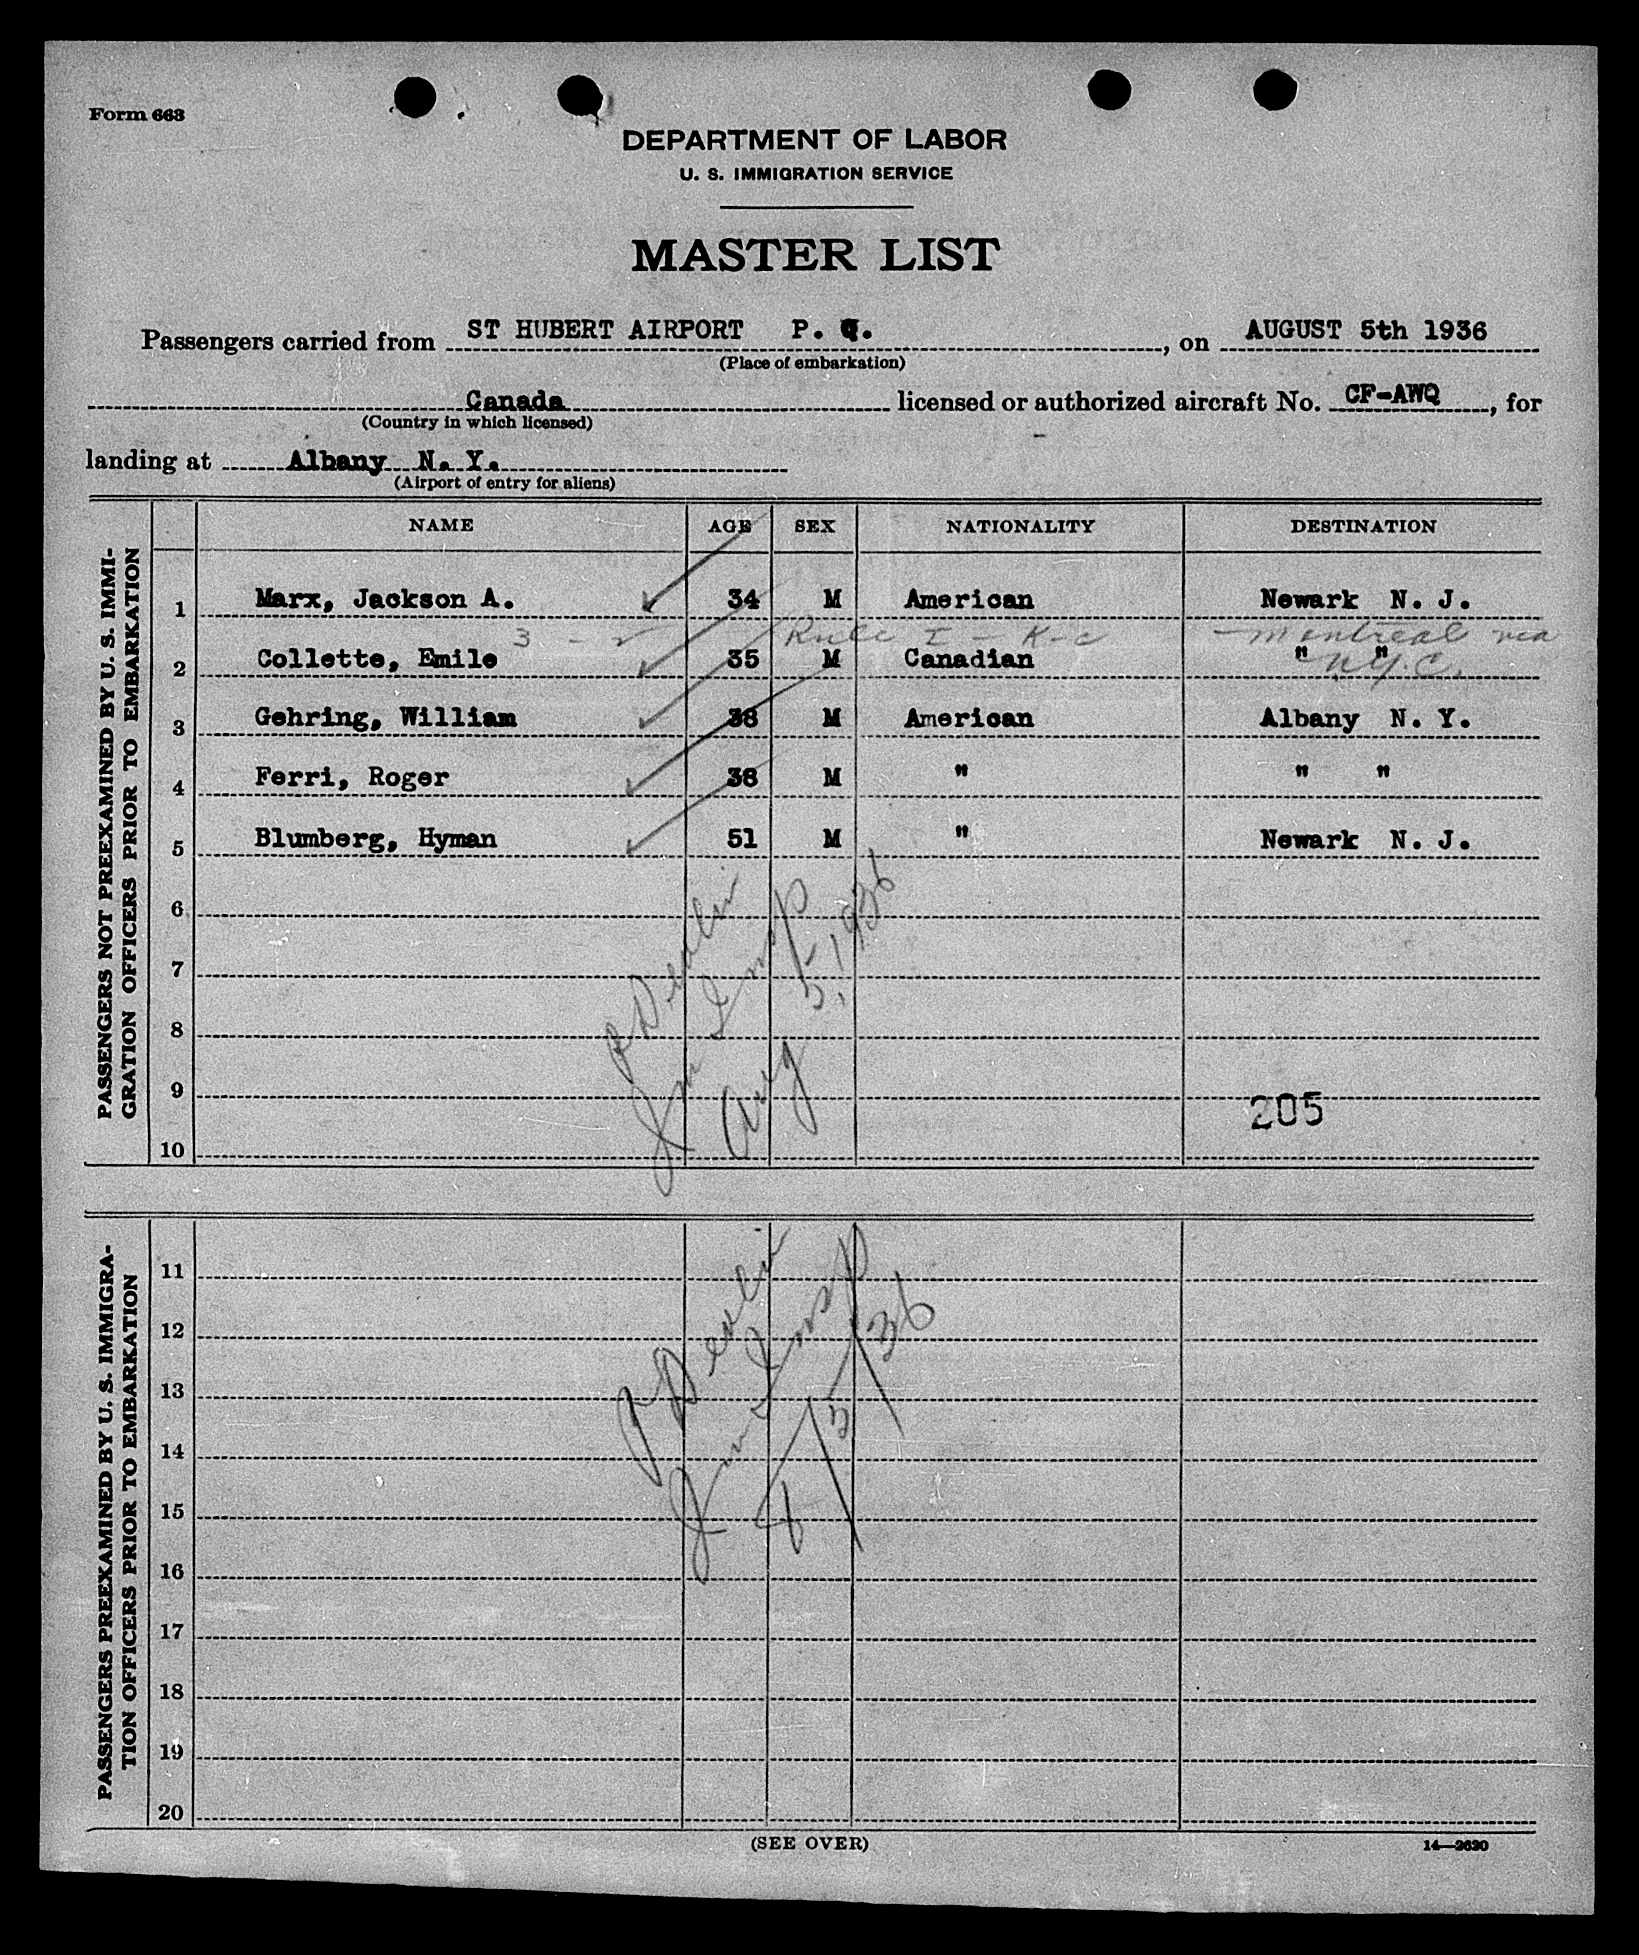 Form 663
DEPARTMENT OF LABOR
U. S. IMMIGRATION SERVICE
MASTER LIST
Passengers carried from ST HUBERT AIRPORT P. Q. , on AUGUST 5th 1936
(Place of embarkation)
Canada licensed or authorized aircraft No. CF-AWQ , for
(Country in which licensed)
landing at Albany N. Y.
(Airport of entry for aliens)
NAME AGE SEX NATIONALITY DESTINATION
PASSENGERS NOT PREEXAMINED BY U. S. IMMI-
GRATION OFFICERS PRIOR TO EMBARKATION
1 Marx, Jackson A. 34 M American Newark N. J.
3 - Rule I - K-c - Montreal via
2 Collette, Emile 35 M Canadian " "
N.Y.C.
3 Gehring, William 38 M American Albany N. Y.
4 Ferri, Roger 38 M " " "
5 Blumberg, Hyman 51 M " Newark N. J.
6
7
8
9
10
Devlin
Imm Insp
Aug 5, 1936
205
PASSENGERS PREEXAMINED BY U. S. IMMIGRA-
TION OFFICERS PRIOR TO EMBARKATION
11
12
13
14
15
16
17
18
19
20
Devlin
Imm Insp
8/5/36
(SEE OVER)
14—2620